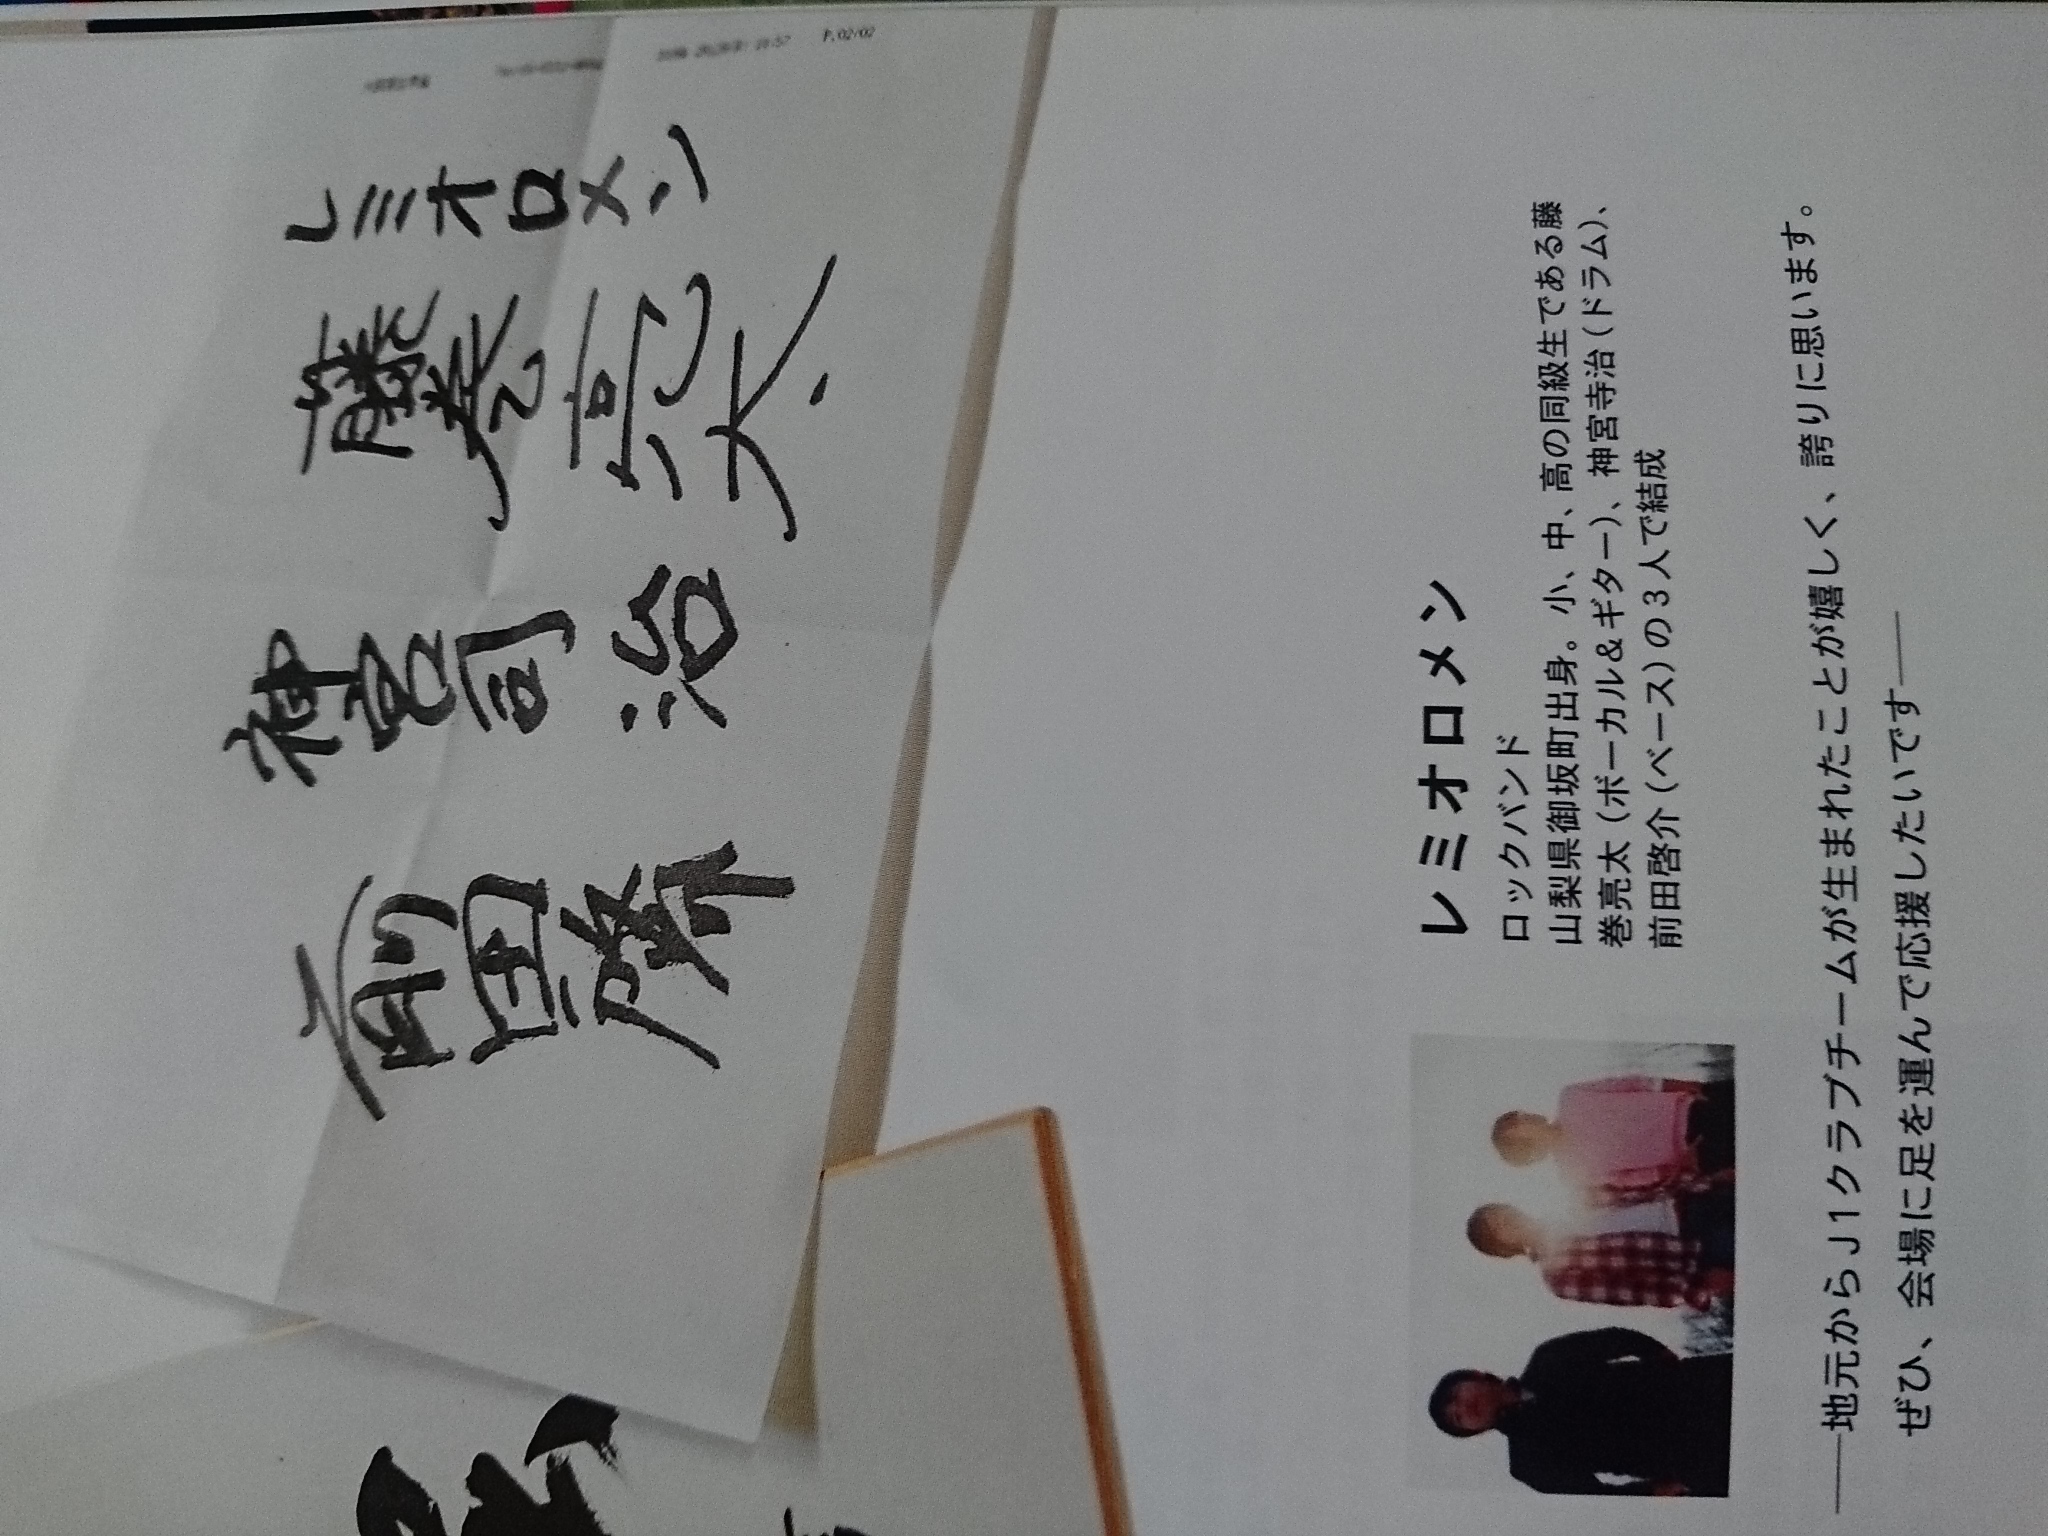 P.02/02
レミオロメン
藤巻亮太
神宮司治
前田啓介
レミオロメン
ロックバンド
山梨県御坂町出身。小、中、高の同級生である藤
巻亮太（ボーカル&ギター）、神宮寺治（ドラム）、
前田啓介（ベース）の３人で結成
――地元からＪ１クラブチームが生まれたことが嬉しく、誇りに思います。
ぜひ、会場に足を運んで応援したいです――